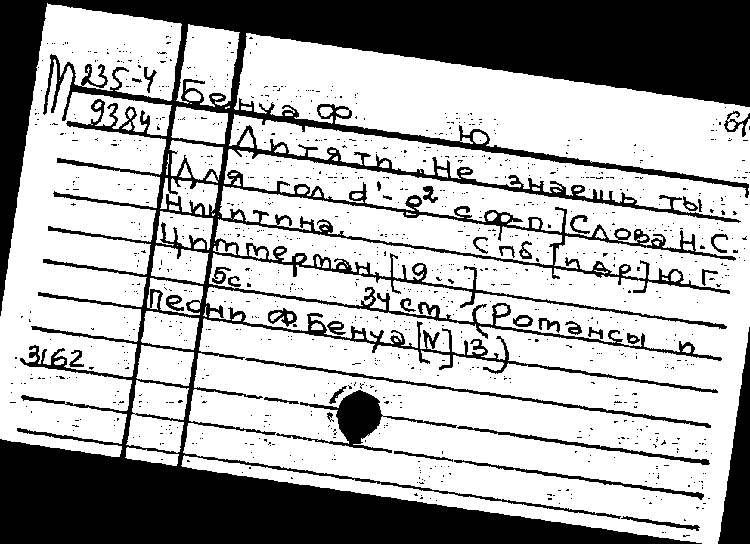 М 235-4
9384.
61
Бенуа, Ф. Ю.
Дитяти. „Не знаешь ты...
[Для гол. d'-g² с ф-п.] Слова Н.С.
Никитина. Спб. [и др.] Ю. Г.
Циммерман, [19..]
5с. 34 см. (Романсы и
песни Ф. Бенуа. [N] 13.)
3162.